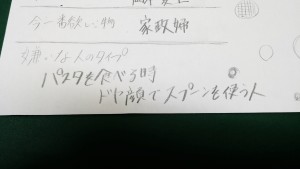 今一番欲しい物 家政婦
嫌いな人のタイプ
パスタを食べる時
ドヤ顔でスプーンを使う人